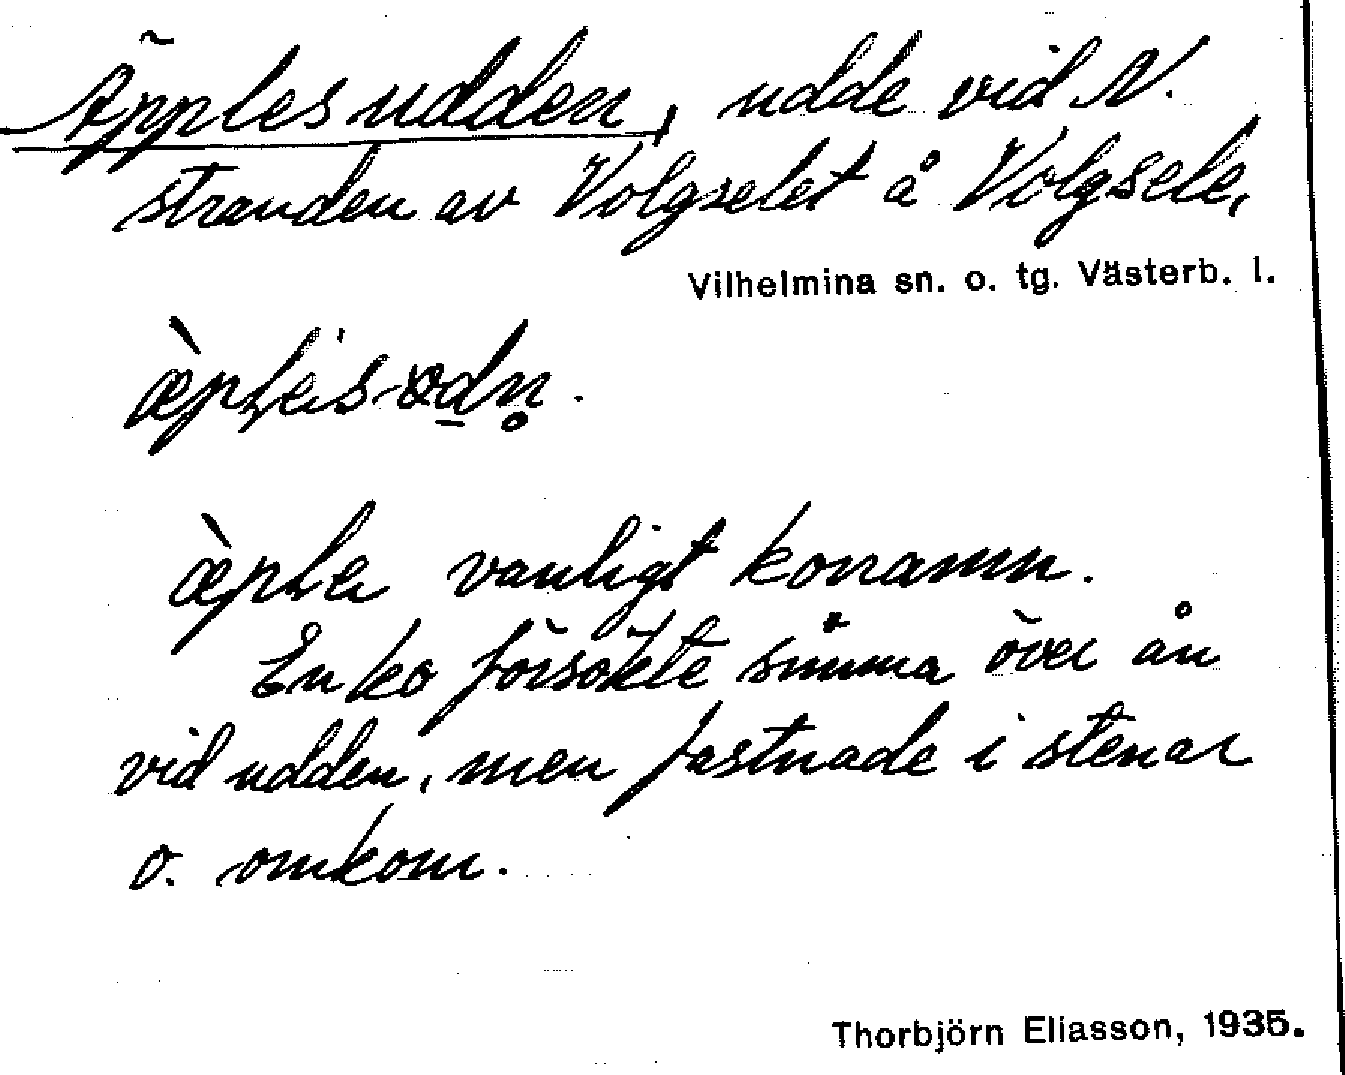 Äpplesudden, udde vid N.
stranden av Volgselet å Volgsele,
Vilhelmina sn. o. tg. Västerb. l.
vanligt konamn.
En ko försökte simma över ån
vid udden, men fastnade i stenar
o. omkom.
Thorbjörn Eliasson, 1935.